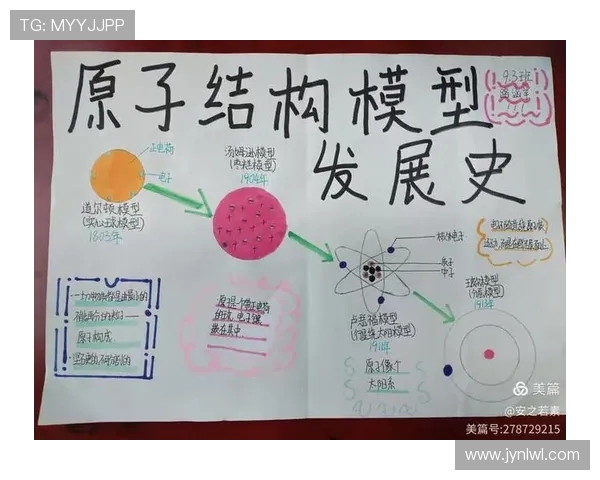 TG: MYYJJPP
原子结构模型
发展史
9.3班
正电荷
电子
道尔顿模型
(实心球模型)
1803年
汤姆逊模型
(枣糕模型)
1904年
核外电子
质子
中子
卢瑟福模型
(行星绕太阳模型)
1911年
原子像个
太阳系
玻尔模型
1913年
原子构成
原子是个带正电荷
的球,电子镶
嵌在其中
美篇
@安之若素
美篇号:278729215
www.jynlwl.com